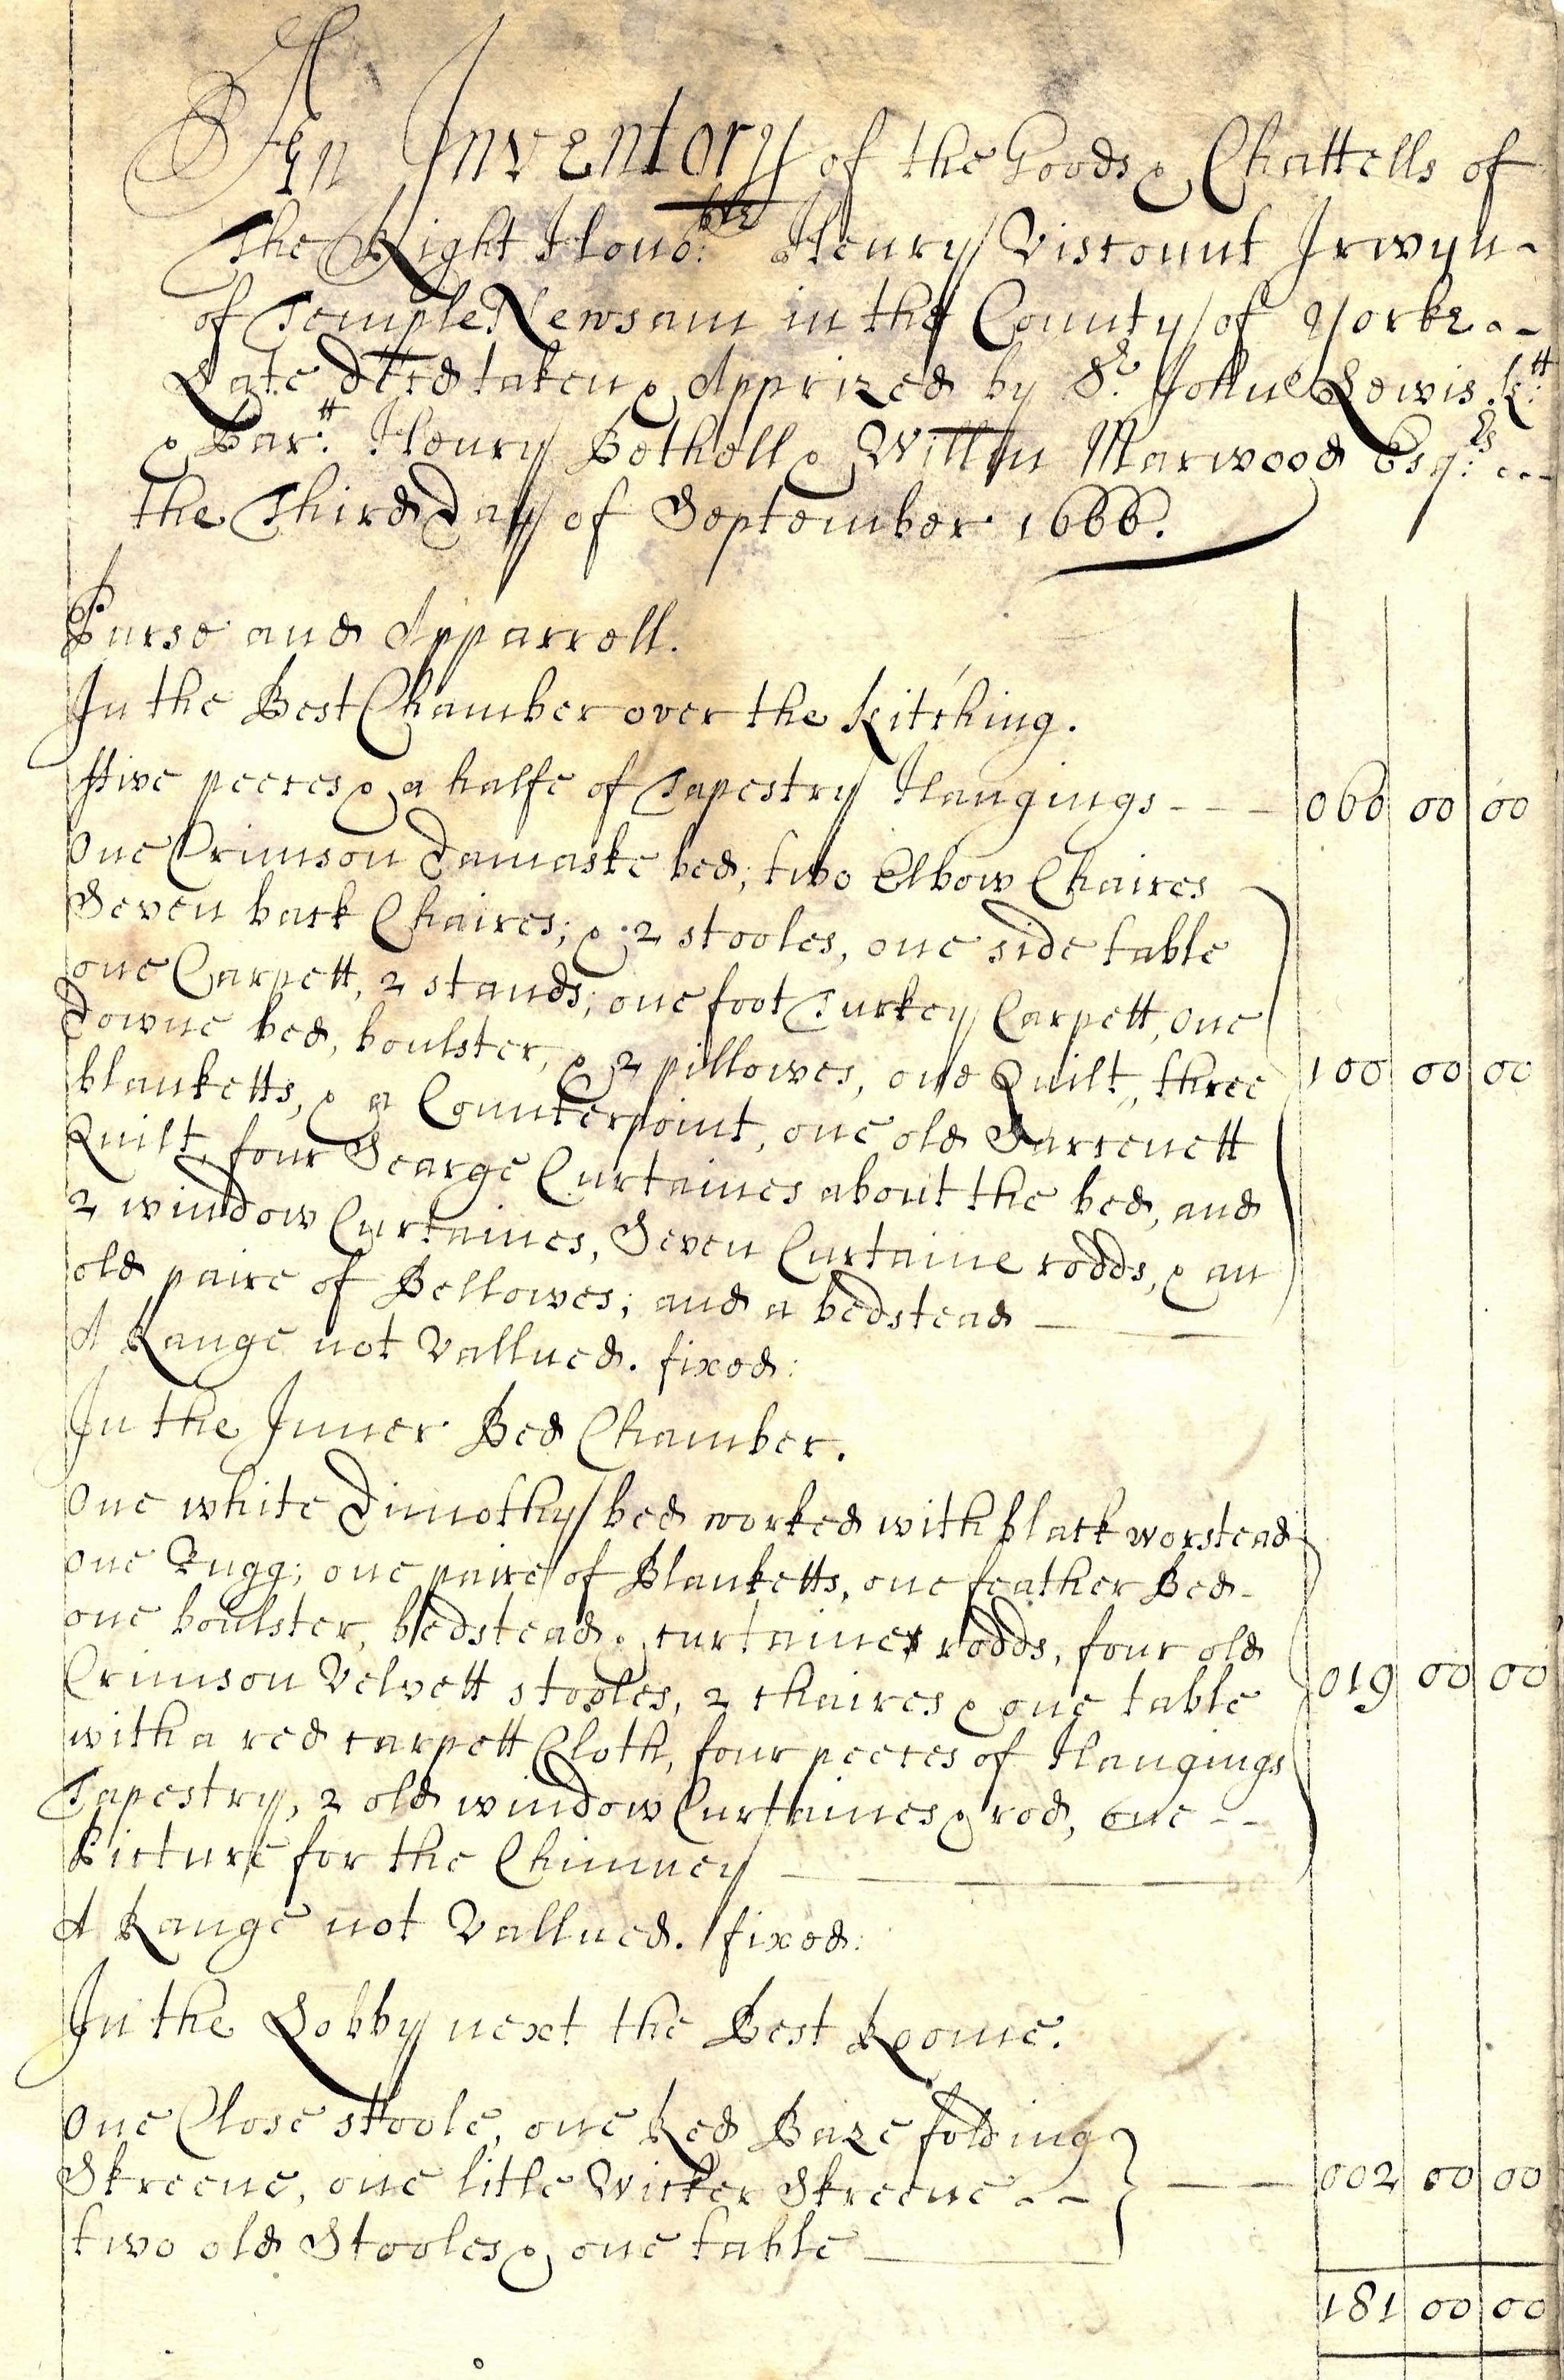 An Inventory of the Goods & Chattells of
The Right Hono:ble Henry Viscount Irwyn -
of Temple Newsam in the County of Yorke - -
Late decd taken & Apprized by Sr. John Lewis Kt:
& Bar:tt Henry Bethell & Willm Marwood Esq:rs ...
the Third Day of September 1666.
Purse and Apparrell.
In the Best Chamber over the Kitching.
ffive peeces & a halfe of Tapestry Hangings - - - 060 00 00
One Crimson Damaske bed; two Elbow Chaires
Seven back Chaires; & 2 stooles, one side table
one Carpett, 2 stands; one foot Turkey Carpett, one
Downe bed, boulster, & 2 pillowes, one Quilt, three 100 00 00
blanketts, & a Counterpoint, one old Sarcenett
Quilt, four Searge Curtaines about the bed, and
2 window Curtaines, Seven Curtaine rodds, & an
old paire of Bellowes; and a bedstead
A Range not Vallued. fixed:
In the Inner Bed Chamber.
One white Dimothy bed worked with black worstead
one Rugg; one paire of Blanketts, one feather Bed -
one boulster, bedstead & curtaines rodds, four old
Crimson Velvett stooles, 2 chaires & one table 019 00 00
with a red carpett Cloth, four peeces of Hangings
Tapestry, 2 old window Curtaines & rod, one - -
Picture for the Chimney
A Range not Vallued. fixed:
In the Lobby next the Best Roome.
One Close stoole, one Red Baze folding
Skreene, one litle Wicker Skreene - - 002 00 00
two old Stooles & one table
181 00 00